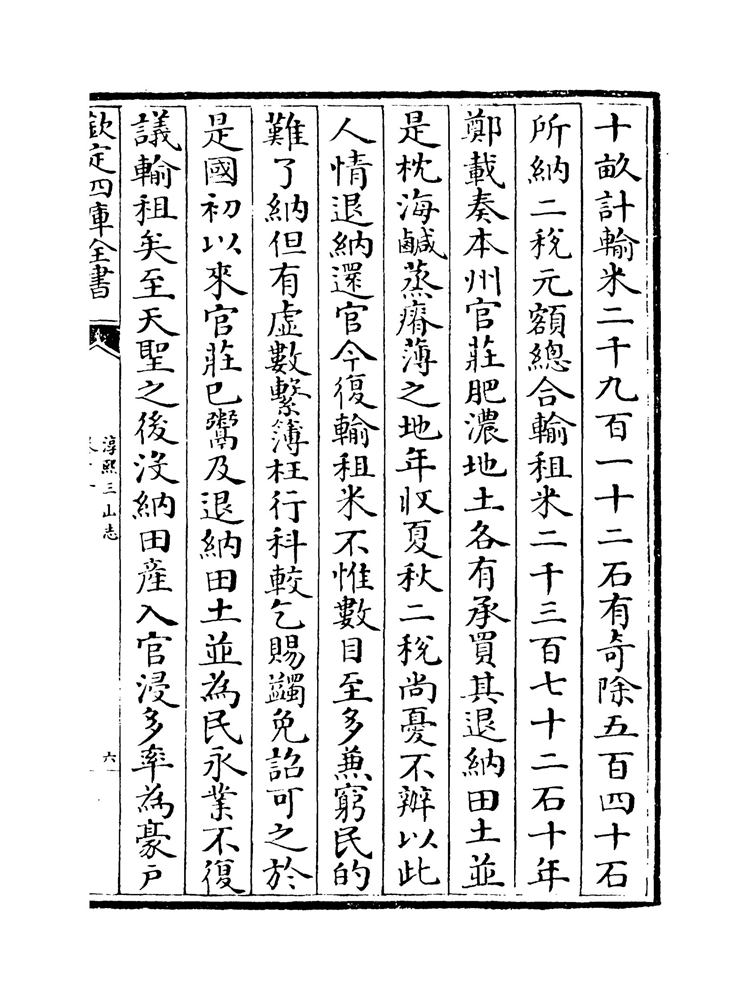 十畝計輸米二千九百一十二石有奇除五百四十石
所納二稅元額總合輸租米二千三百七十二石十年
鄭載奏本州官莊肥濃地土各有承買其退納田土並
是枕海鹹蒸瘠薄之地年收夏秋二稅尚憂不辦以此
人情退納還官今復輸租米不惟數目至多兼窮民的
難了納但有虛數繫簿枉行科較乞賜蠲免詔可之於
是國初以來官莊已鬻及退納田土並為民永業不復
議輸租矣至天聖之後没納田産入官浸多率為豪戶
欽定四庫全書
淳熙三山志
六